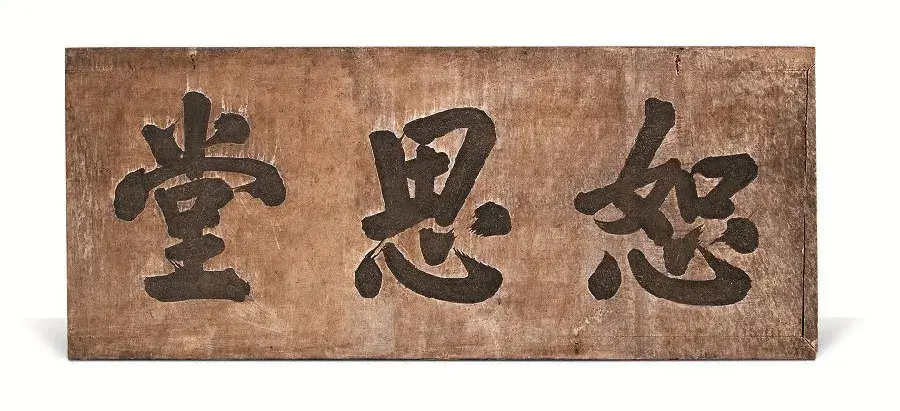 恕思堂